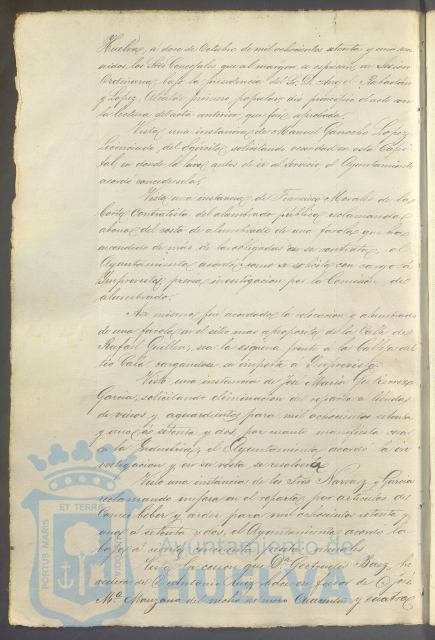 Huelva, a doce de Octubre de mil ochocientos setenta y uno reu-
nidos los Sres Concejales que al margen se espresan, en sesion
Ordinaria bajo la presidencia del Sr. D.
y Lopez, Alcalde primero popular, dio principio el acto con
la lectura del acta anterior que fué aprobada.
Vista una instancia de Manuel Garrocho Lopez
Licenciado del Egército, solicitando vecindad en esta Capi-
tal, en donde la tuvo antes de ir al servicio el Ayuntamiento
acordó concedersela.
Vista una instancia de Francisco Morales de los
Cortes Contratista del alumbrado público, reclamando
abono del costo de alumbrado de una farola que ha
encendido de mas de las obligadas en su contrata, el
Ayuntamiento acordó, como se solicita con cargo á
Imprevistos, previa investigacion por la Comision de
alumbrado.
Asi mismo fué acordada la colocacion y alumbrado
de una farola en el sitio mas aproposito de la Calle de
Rafael Guillen, sea la esquina frente á la Calleja del
tio Cala, cargandose su importe á Imprevistos.
Vista una instancia de José Maria Gutierrez
Garcia, solicitando eliminacion del reparto á tiendas
de vinos y aguardientes para mil ochocientos setenta
y uno á setenta y dos, por cuanto manifiesta
la Industria, el Ayuntamiento acordó la in-
vestigacion y en su vista se resolverá
Visto una instancia de los Sres Narvaez y Garcia
reclamando mejora en el reparto por articulos de
Comer beber y arder para mil ochocientos setenta y
uno á setenta y dos, el Ayuntamiento acordó la
baja á ciento cincuenta pesetas anuales
Vista la cesion que Da. Gertrudis Baez he-
redera de D. Antonio Ruiz hace en favor de José
Ma. Manzano del nicho número Cuarenta y cuatro
ET TERRÆ
PORTUS MARIS
CUSTODIA
Ayuntamiento de
HUELVA